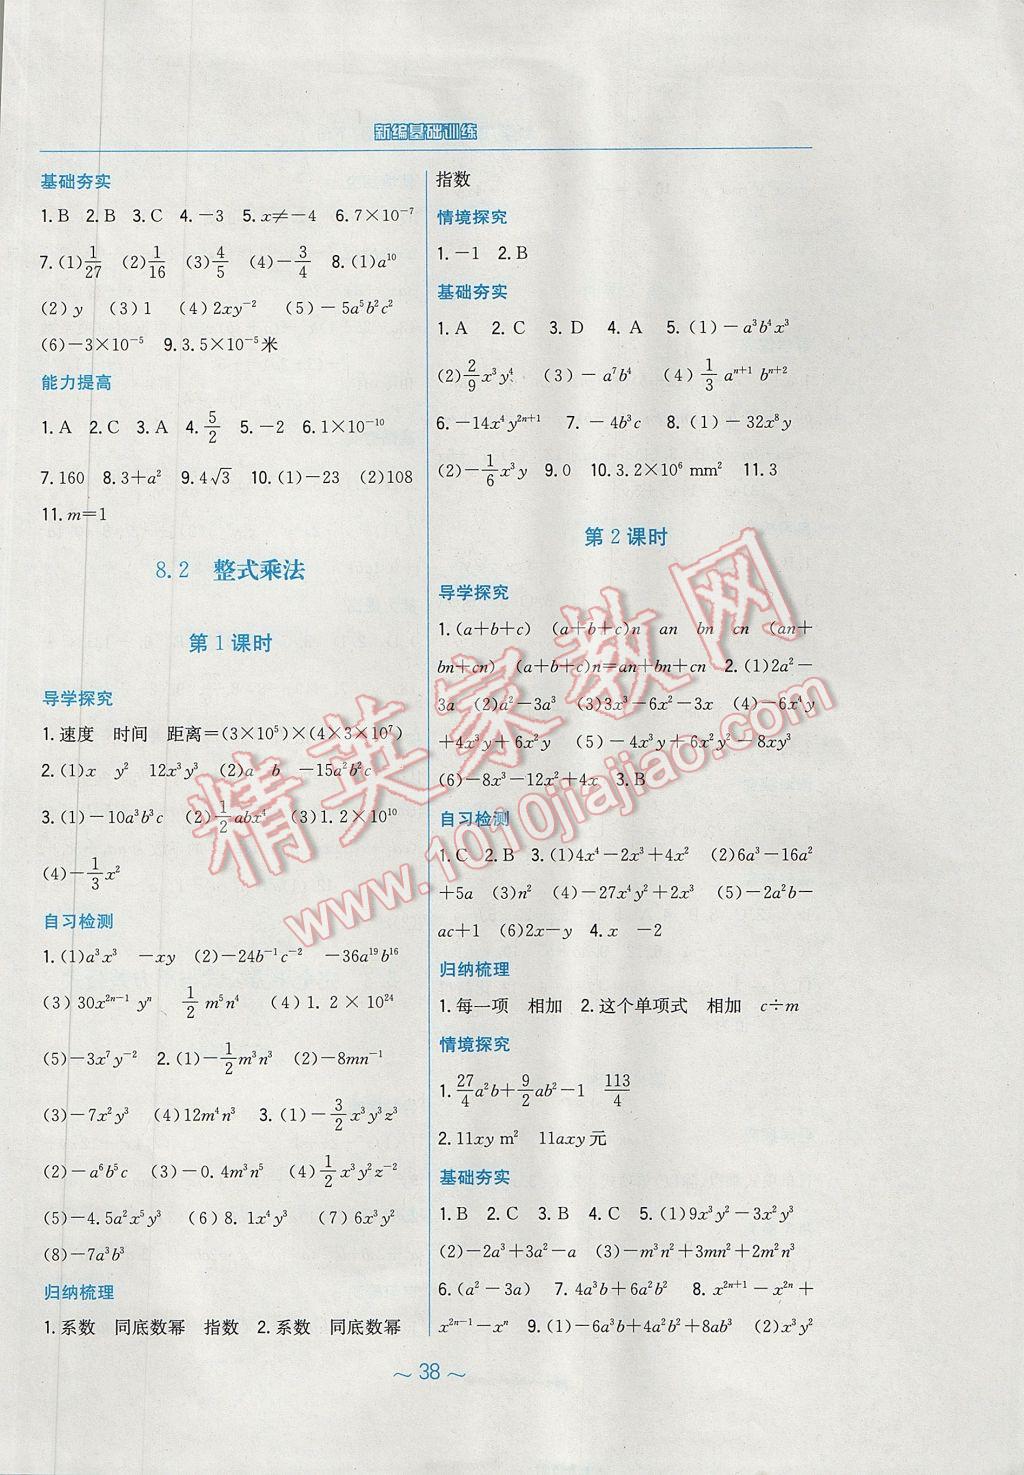 新编基础训练
基础夯实
1.B 2.B 3.C 4.－3 5.x≠－4 6.7×10⁻⁷
7.(1)1/27 (2)1/16 (3)4/5 (4)－3/4 8.(1)a¹⁰
(2)y (3)1 (4)2xy⁻² (5)－5a⁵b²c²
(6)－3×10⁻⁵ 9.3.5×10⁻⁵米
能力提高
1.A 2.C 3.A 4.5/2 5.－2 6.1×10⁻¹⁰
7.160 8.3＋a² 9.4√3 10.(1)－23 (2)108
11.m＝1
8.2 整式乘法
第1课时
导学探究
1.速度 时间 距离＝(3×10⁵)×(4×3×10⁷)
2.(1)x y² 12x³y³ (2)a b －15a²b²c
3.(1)－10a³b³c (2)1/2abx⁴ (3)1.2×10¹⁰
(4)－1/3x²
自习检测
1.(1)a³x³ －xy (2)－24b⁻¹c⁻² －36a¹⁹b¹⁶
(3)30x²ⁿ⁻¹yⁿ 1/2m⁵n⁴ (4)1.2×10²⁴
(5)－3x⁷y⁻² 2.(1)－1/2m³n³ (2)－8mn⁻¹
(3)－7x²y³ (4)12m⁴n³ 3.(1)－3/2x³y³z³
(2)－a⁶b⁵c (3)－0.4m³n⁵ (4)1/2x³y²z⁻²
(5)－4.5a²x⁵y³ (6)8.1x⁴y³ (7)6x³y²
(8)－7a³b³
归纳梳理
1.系数 同底数幂 指数 2.系数 同底数幂
指数
情境探究
1.－1 2.B
基础夯实
1.A 2.C 3.D 4.A 5.(1)－a³b⁴x³
(2)2/9x³y⁴ (3)－a⁷b⁴ (4)1/3aⁿ⁺¹bⁿ⁺²
6.－14x⁴y²ⁿ⁺¹ 7.－4b³c 8.(1)－32x⁸y
(2)－1/6x³y 9.0 10.3.2×10⁶ mm² 11.3
第2课时
导学探究
1.(a＋b＋c) (a＋b＋c)n an bn cn (an＋
bn＋cn) (a＋b＋c)n＝an＋bn＋cn 2.(1)2a²－
3a (2)a²－3a³ (3)3x³－6x²－3x (4)－6x⁴y
＋4x³y＋6x²y (5)－4x³y＋6x²y²－8xy³
(6)－8x³－12x²＋4x 3.B
自习检测
1.C 2.B 3.(1)4x⁴－2x³＋4x² (2)6a³－16a²
＋5a (3)n² (4)－27x⁴y²＋2x³ (5)－2a²b－
ac＋1 (6)2x－y 4.x －2
归纳梳理
1.每一项 相加 2.这个单项式 相加 c÷m
情境探究
1.27/4a²b＋9/2ab²－1 113/4
2.11xy m² 11axy元
基础夯实
1.B 2.C 3.B 4.C 5.(1)9x³y²－3x²y³
(2)－2a³＋3a²－a (3)－m³n²＋3mn²＋2m²n³
6.(a²－3a) 7.4a³b＋6a²b² 8.x²ⁿ⁺¹－x²ⁿ＋
x²ⁿ⁻¹－xⁿ 9.(1)－6a³b＋4a²b²＋8ab³ (2)x³y²
～38～
精英家教网
www.1010jiajiao.com